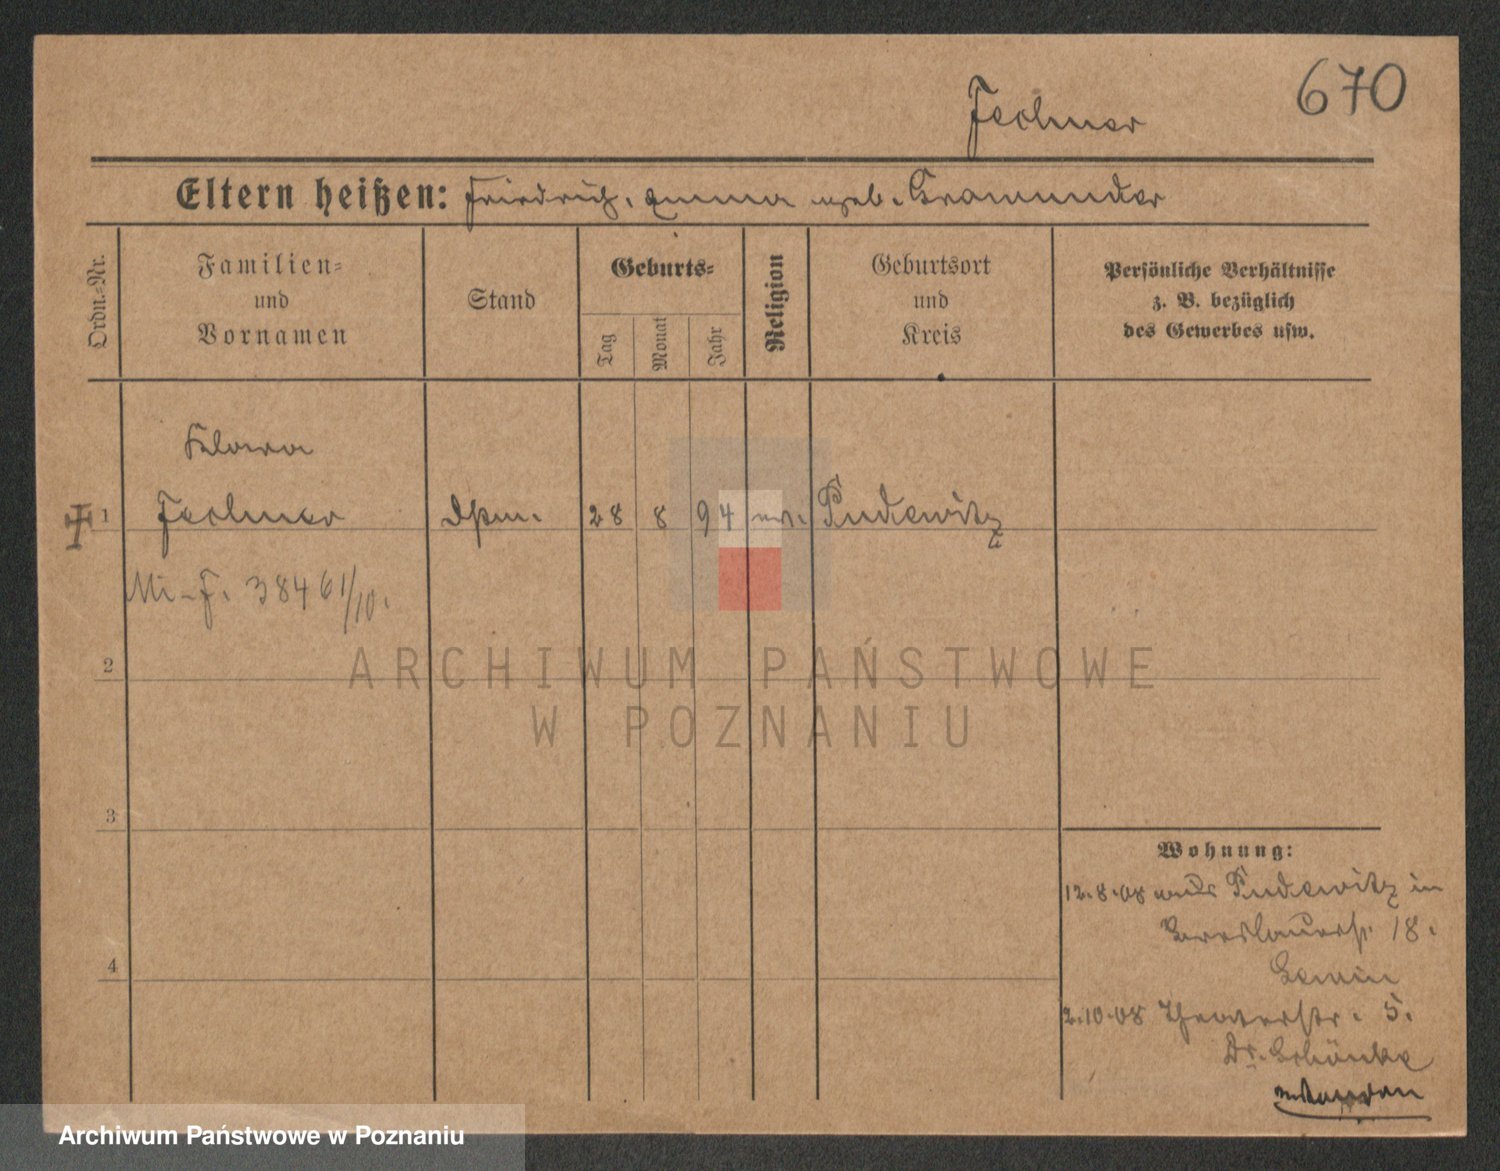 670
Fechner
Eltern heißen: Friedrich, Emma geb.
Ordn.-Nr.
Familien-
und
Vornamen
Stand
Geburts-
Tag
Monat
Jahr
Religion
Geburtsort
und
Kreis
Persönliche Verhältnisse
z. B. bezüglich
des Gewerbes usw.
Klara
1 Fechner 28 8 94 ev. Pudewitz
Mi-F. 38461/10.
2
3
4
Wohnung:
12.8.08 aus Pudewitz in
Breslauerstr. 18.
2.10.08 Theaterstr. 5.
Dr.
ARCHIWUM PAŃSTWOWE
W POZNANIU
Archiwum Państwowe w Poznaniu